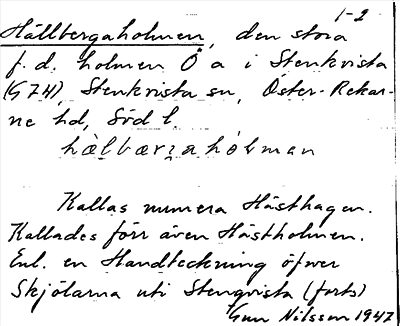 1-2
Hällbergaholmen, den stora
f.d. holmen Ö a i Stenkvista
(G 74), Stenkvista sn, Öster-Rekar-
ne hd, Södl.
hälbærzahòlman
Kallas numera Hästhagen.
Kallades förr även Hästholmen.
Enl. en Handteckning öfwer
Skjölarna uti Stenqvista (forts)
Gun Nilsson 1947